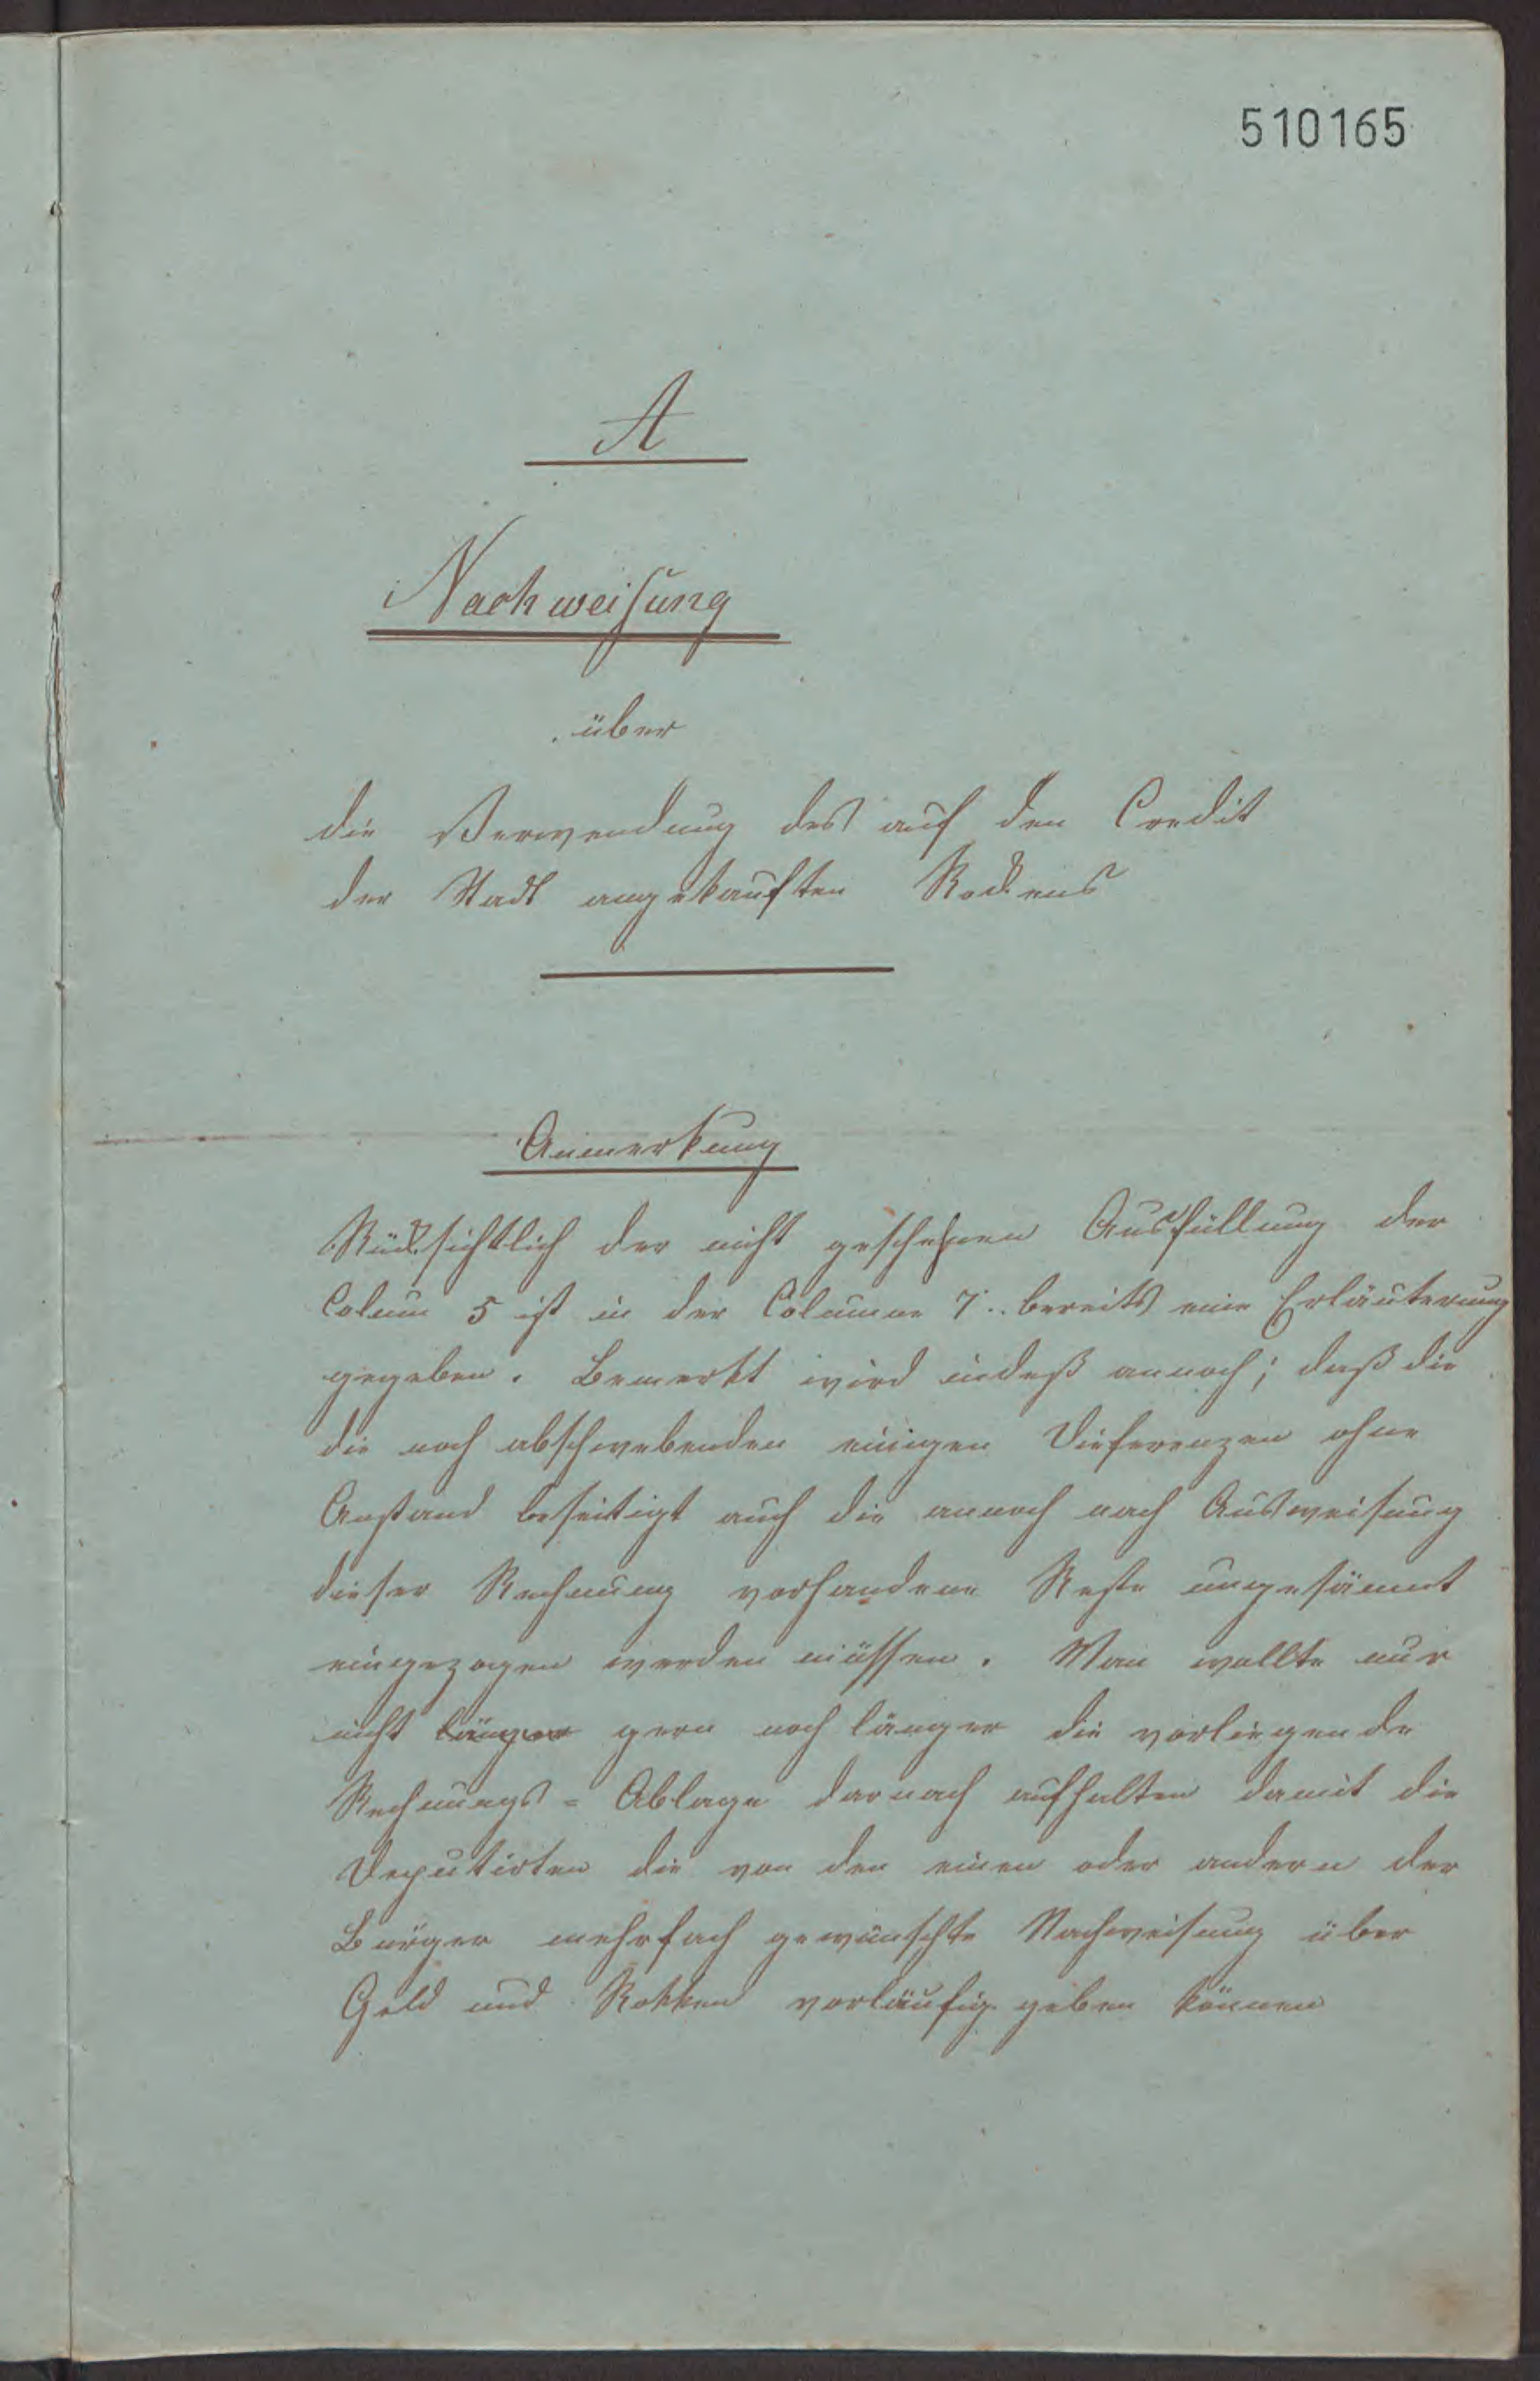 510165
A
Nachweisung
über
die Verwendung des auf den Credit
der Stadt angekauften Rockens
Anmerkung
Rücksichtlich der nicht geschehenen Ausfüllung der
Colum 5 ist in der Columne 7.. bereits eine Erläuterung
gegeben. Bemerkt wird indeß annoch; daß die
die noch obschwebenden einigen Dieferenzen ohne
Anstand beseitigt auch die annoch nach Ausweisung
dieser Rechnung vorhandene Reste ungesäumt
eingezogen werden müssen. Man wollte nur
nicht länger gern noch länger die vorliegende
Rechnungs-Ablage darnach aufhalten damit die
Deputirten die von den einen oder andern der
Bürger mehrfach gewünschte Nachweisung über
Geld und Rokken vorläufig geben können